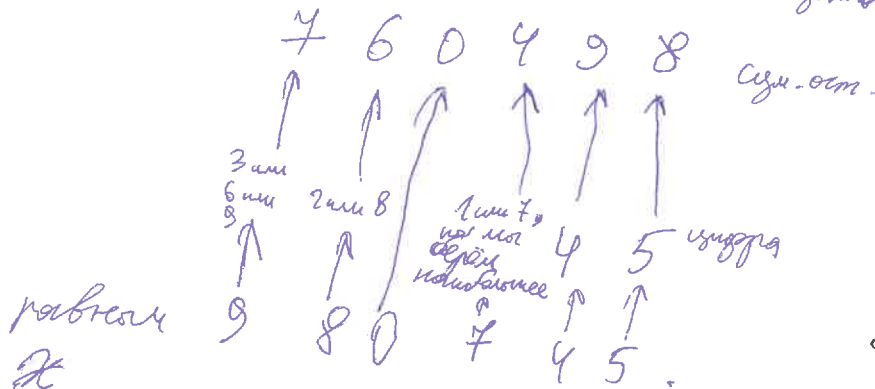 7 6 0 4 9 8
сум. ост.
3 или
6 или
9
2 или 8
1 или 7,
но мы
берём
наибольшее
4 5 цифра
равным 9 8 0 7 4 5.
X